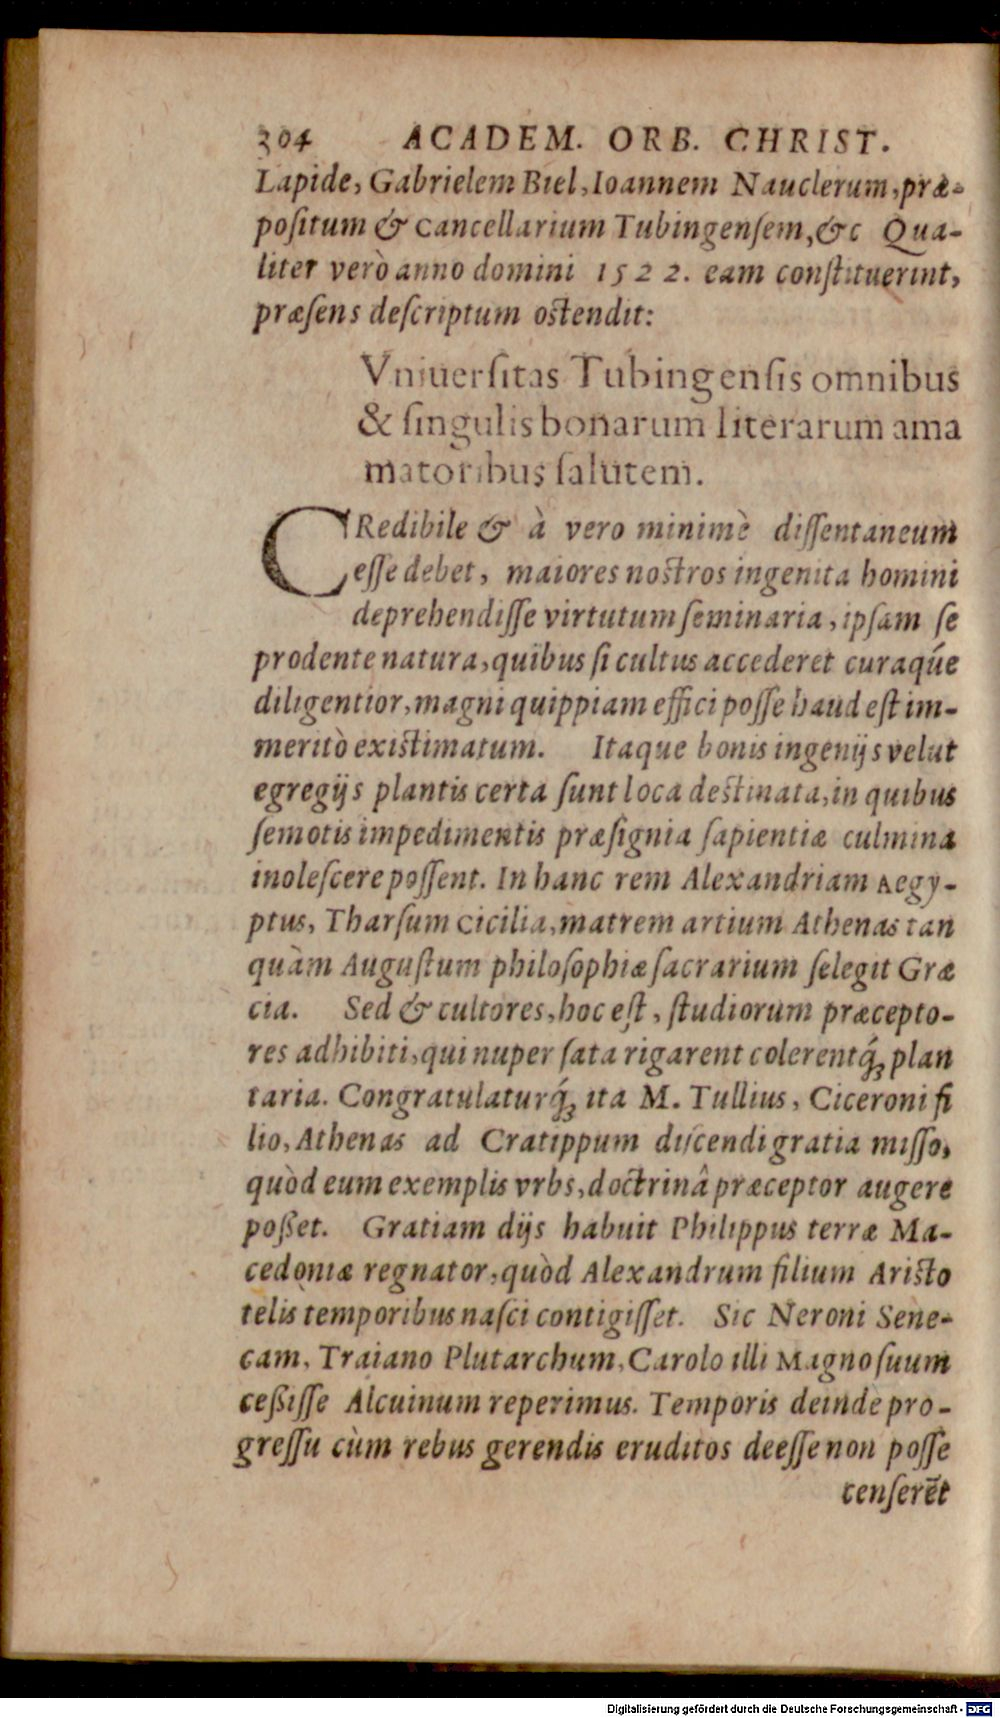 304 ACADEM. ORB. CHRIST.
Lapide, Gabrielem Biel, Ioannem Nauclerum, præ-
poſitum & Cancellarium Tubingenſem, &c Qua-
liter verò anno domini 1522. eam conſtituerint,
præſens deſcriptum oſtendit:
Vniuerſitas Tubingenſis omnibus
& ſingulis bonarum literarum ama
matoribus ſalutem.
CRedibile & à vero minimè diſſentaneum
eſſe debet, maiores noſtros ingenita homini
deprehendiſſe virtutum ſeminaria, ipſam ſe
prodente natura, quibus ſi cultus accederet curaq́ue
diligentior, magni quippiam effici poſſe haud eſt im-
meritò exiſtimatum. Itaque bonis ingenijs velut
egregijs plantis certa ſunt loca deſtinata, in quibus
ſemotis impedimentis præſignia ſapientiæ culmina
inoleſcere poſſent. In hanc rem Alexandriam Aegy-
ptus, Tharſum Cicilia, matrem artium Athenas tan
quàm Auguſtum philoſophiæ ſacrarium ſelegit Græ
cia. Sed & cultores, hoc eſt, ſtudiorum præcepto-
res adhibiti, qui nuper ſata rigarent colerentq́ꝫ plan
taria. Congratulaturq́ꝫ ita M. Tullius, Ciceroni fi
lio, Athenas ad Cratippum diſcendi gratia miſſo,
quòd eum exemplis vrbs, doctrinâ præceptor augere
poßet. Gratiam dijs habuit Philippus terræ Ma-
cedoniæ regnator, quòd Alexandrum filium Ariſto
telis temporibus naſci contigiſſet. Sic Neroni Sene-
cam, Traiano Plutarchum, Carolo illi Magno ſuum
ceßiſſe Alcuinum reperimus. Temporis deinde pro-
greſſu cùm rebus gerendis eruditos deeſſe non poſſe
cenſerēt
Digitalisierung gefördert durch die Deutsche Forschungsgemeinschaft - DFG